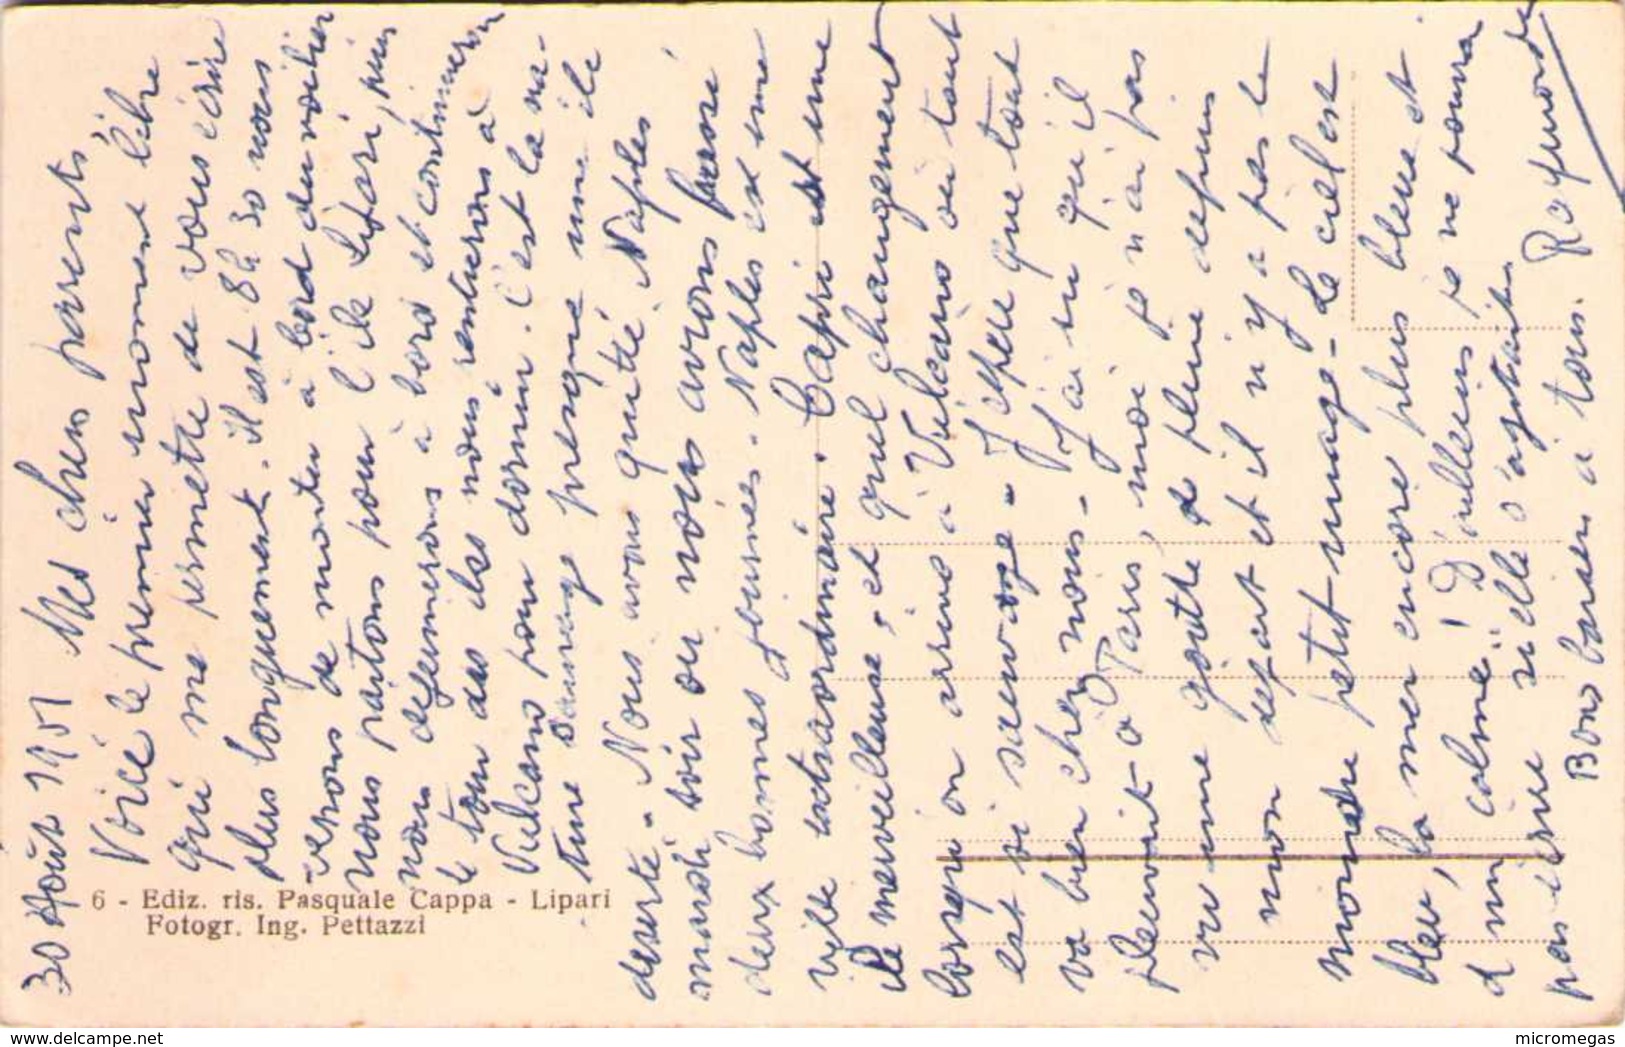 30 Août 1951 Mes chers parents,
Voici le premier moment libre
qui me permette de vous écrire
plus longuement. il est 8h 30 nous
venons de monter à bord du voilier
nous partons pour l'île Lipari, puis
nous déjeunerons à bord et continuerons
le tour des îles nous rentrerons à
Vulcano pour dormir. C'est la na-
ture sauvage presque une île
déserte. Nous avons quitté Naples
mardi soir où nous avons passé
deux bonnes journées. Naples est une
ville extraordinaire. Capri est une
île merveilleuse, et quel changement
lorsqu'on arrive à Vulcano où tout
est si sauvage - J'espère que tout
va bien chez nous - J'ai vu qu'il
pleuvait à Paris, moi je n'ai pas
vu une goutte de pluie depuis
mon départ et il n'y a pas le
moindre petit nuage - Le ciel est
bleu, la mer encore plus bleue et
d'un calme! D'ailleurs je ne pourrai
pas écrire si elle s'agitait.
Bons baisers à tous. Raymonde
6 - Ediz. ris. Pasquale Cappa - Lipari
Fotogr. Ing. Pettazzi
micromegas